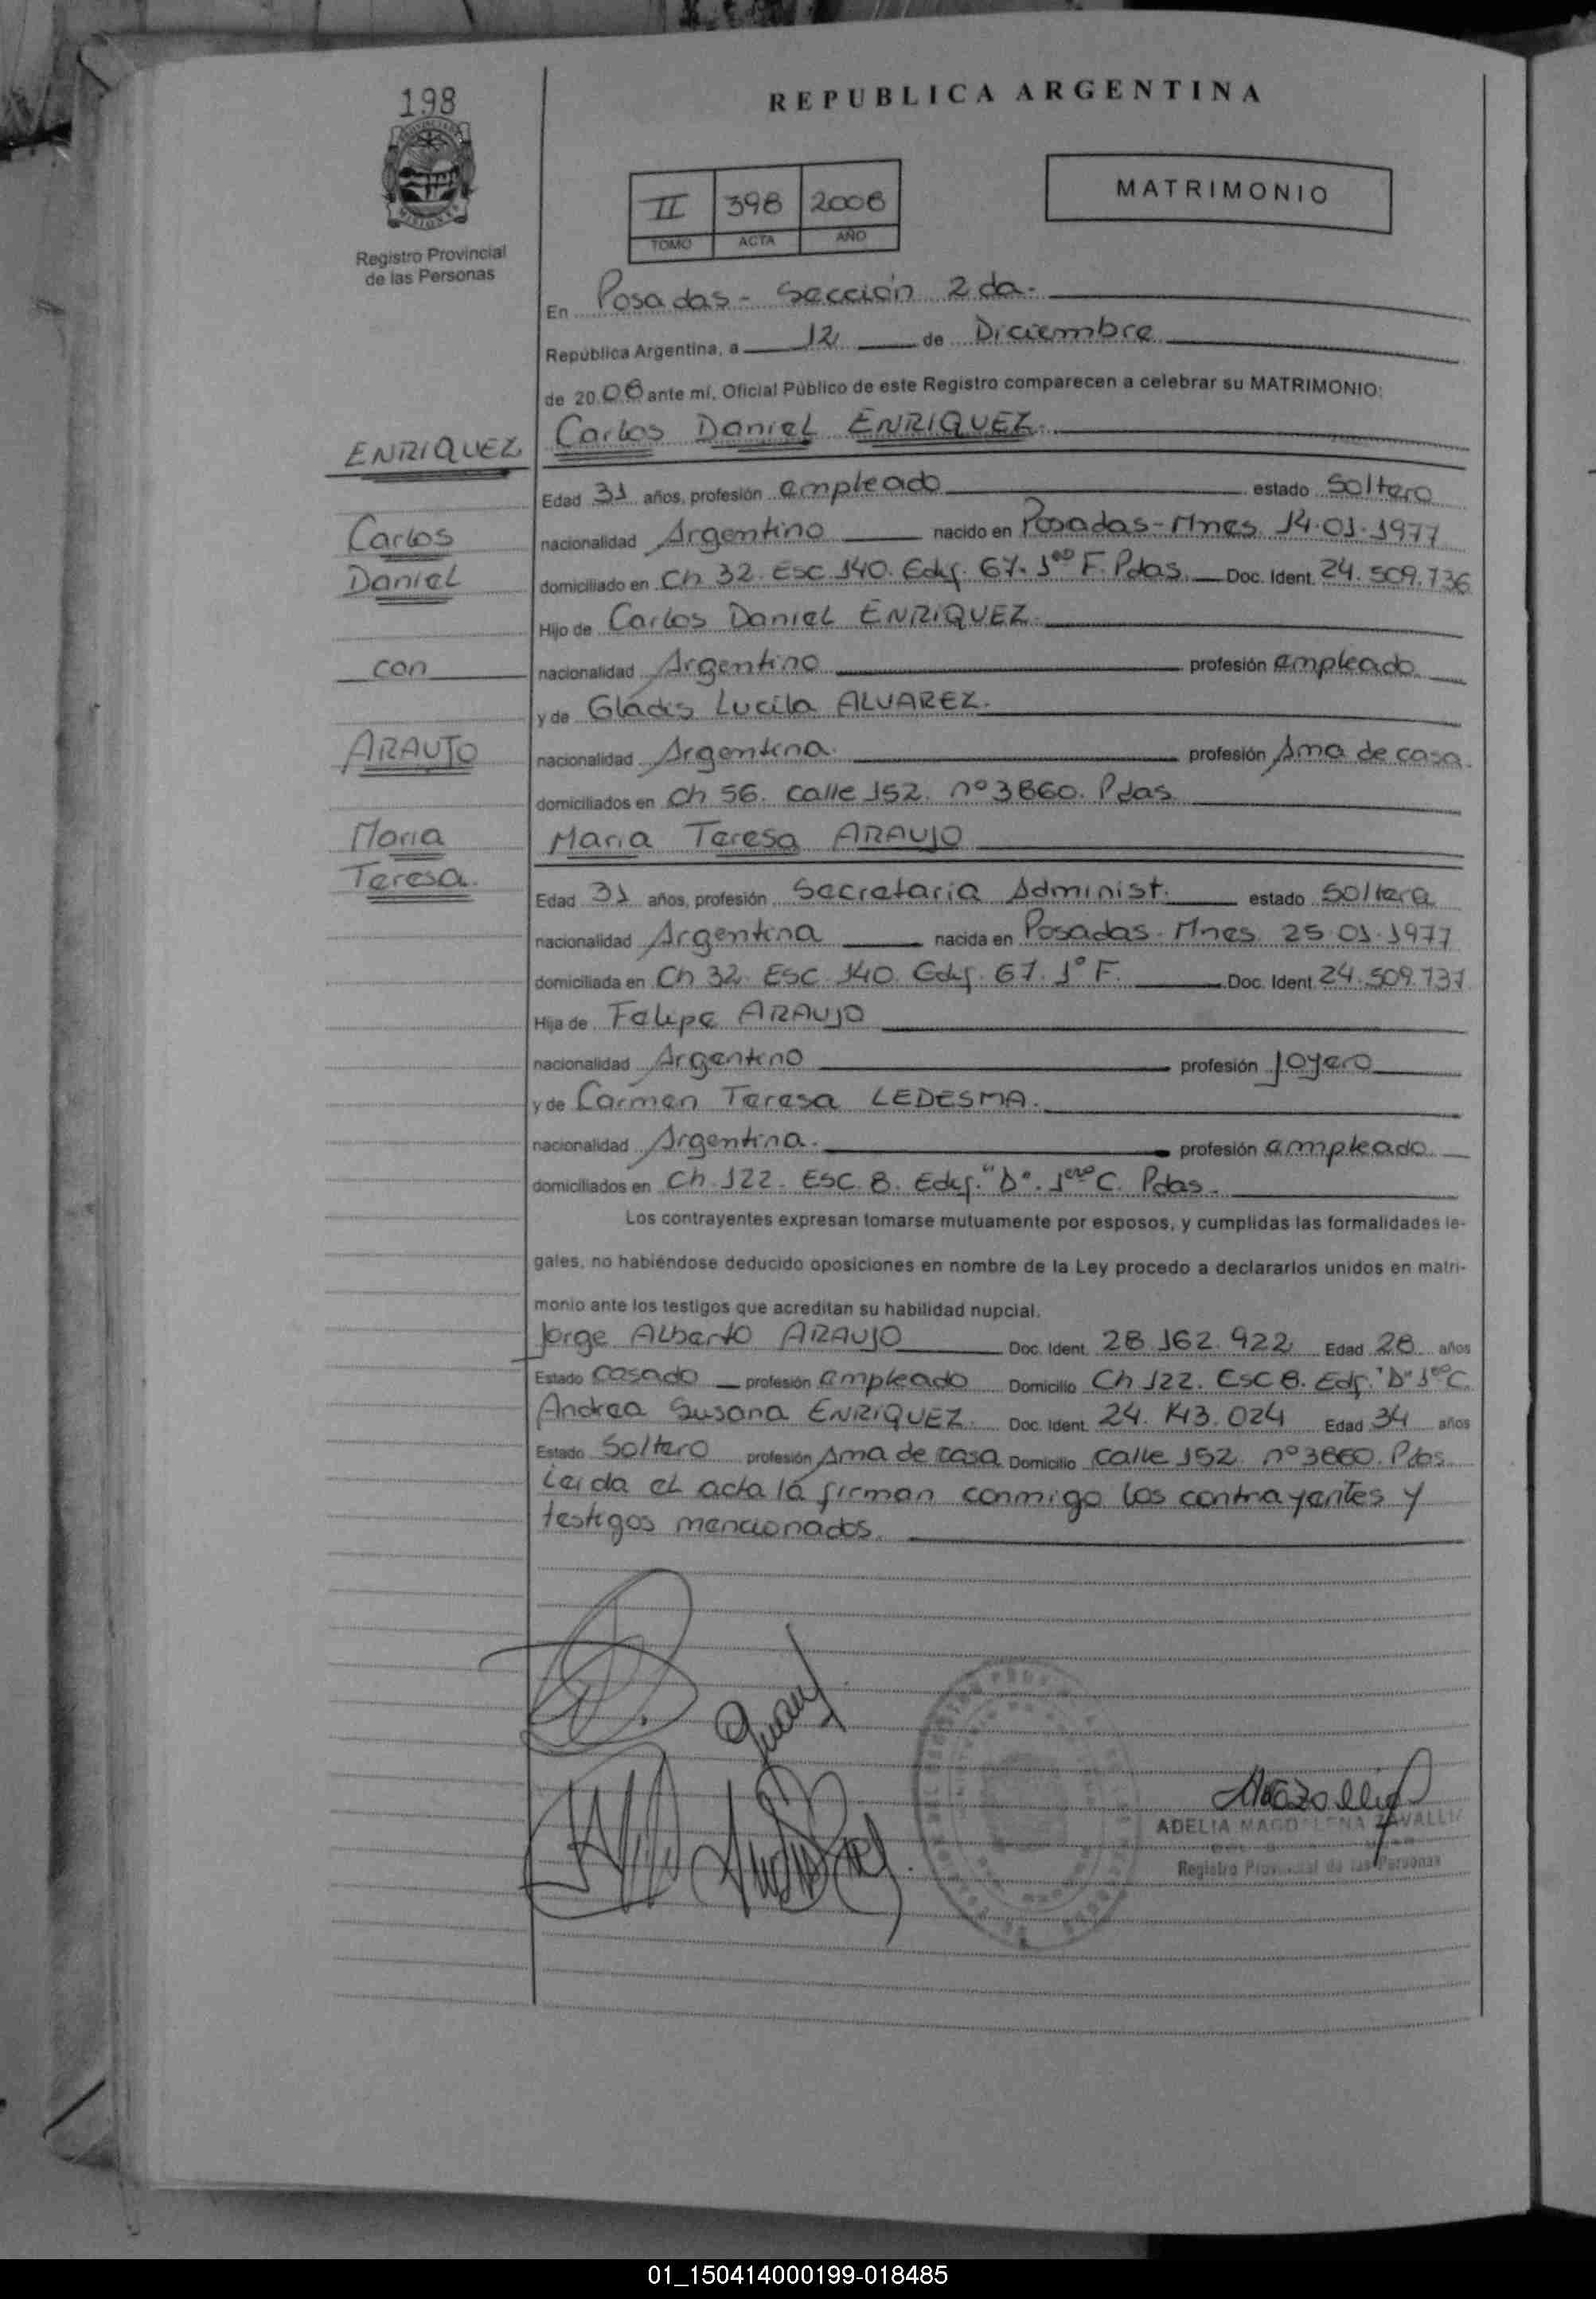 198
REPUBLICA ARGENTINA
II 398 2008
TOMO ACTA AÑO
MATRIMONIO
Registro Provincial
de las Personas
En Posadas - Sección 2da.
República Argentina, a 12 de Diciembre
de 2008 ante mí, Oficial Público de este Registro comparecen a celebrar su MATRIMONIO:
ENRIQUEZ
Carlos Daniel ENRIQUEZ.
Edad 31 años, profesión empleado estado Soltero
Carlos
nacionalidad Argentino nacido en Posadas-Mnes 14.01.1977
Daniel
domiciliado en Ch 32. Esc 140. Edif. 67. 1ero F. Pdas. Doc. Ident. 24.509.736
Hijo de Carlos Daniel ENRIQUEZ.
con
nacionalidad Argentino profesión empleado
y de Gladis Lucila ALVAREZ.
ARAUJO
nacionalidad Argentina. profesión Ama de casa.
domiciliados en Ch 56. calle 152. nº 3860. Pdas
Maria
Maria Teresa ARAUJO
Teresa.
Edad 31 años, profesión Secretaria Administ. estado Soltera
nacionalidad Argentina nacida en Posadas. Mnes 25.01.1977
domiciliada en Ch 32. Esc 140. Edif. 67. 1º F. Doc. Ident. 24.509.737
Hija de Felipe ARAUJO
nacionalidad Argentino profesión Joyero
y de Carmen Teresa LEDESMA.
nacionalidad Argentina. profesión empleado
domiciliados en Ch. 122. Esc 8. Edif. "D". 1ero C. Pdas.
Los contrayentes expresan tomarse mutuamente por esposos, y cumplidas las formalidades le-
gales, no habiéndose deducido oposiciones en nombre de la Ley procedo a declararlos unidos en matri-
monio ante los testigos que acreditan su habilidad nupcial.
Jorge Alberto ARAUJO Doc. Ident. 28.162.922 Edad 28 años
Estado casado profesión empleado Domicilio Ch 122. Esc 8. Edif. "D" 1ero C.
Andrea Susana ENRIQUEZ. Doc. Ident. 24.143.024 Edad 34 años
Estado Soltero profesión Ama de casa Domicilio calle 152. nº 3860. Pdas.
Leida el acta la firman conmigo los contrayentes y
testigos mencionados.
ADELIA MAGDALENA ZAVALLI
Registro Provincial de las Personas
01_150414000199-018485